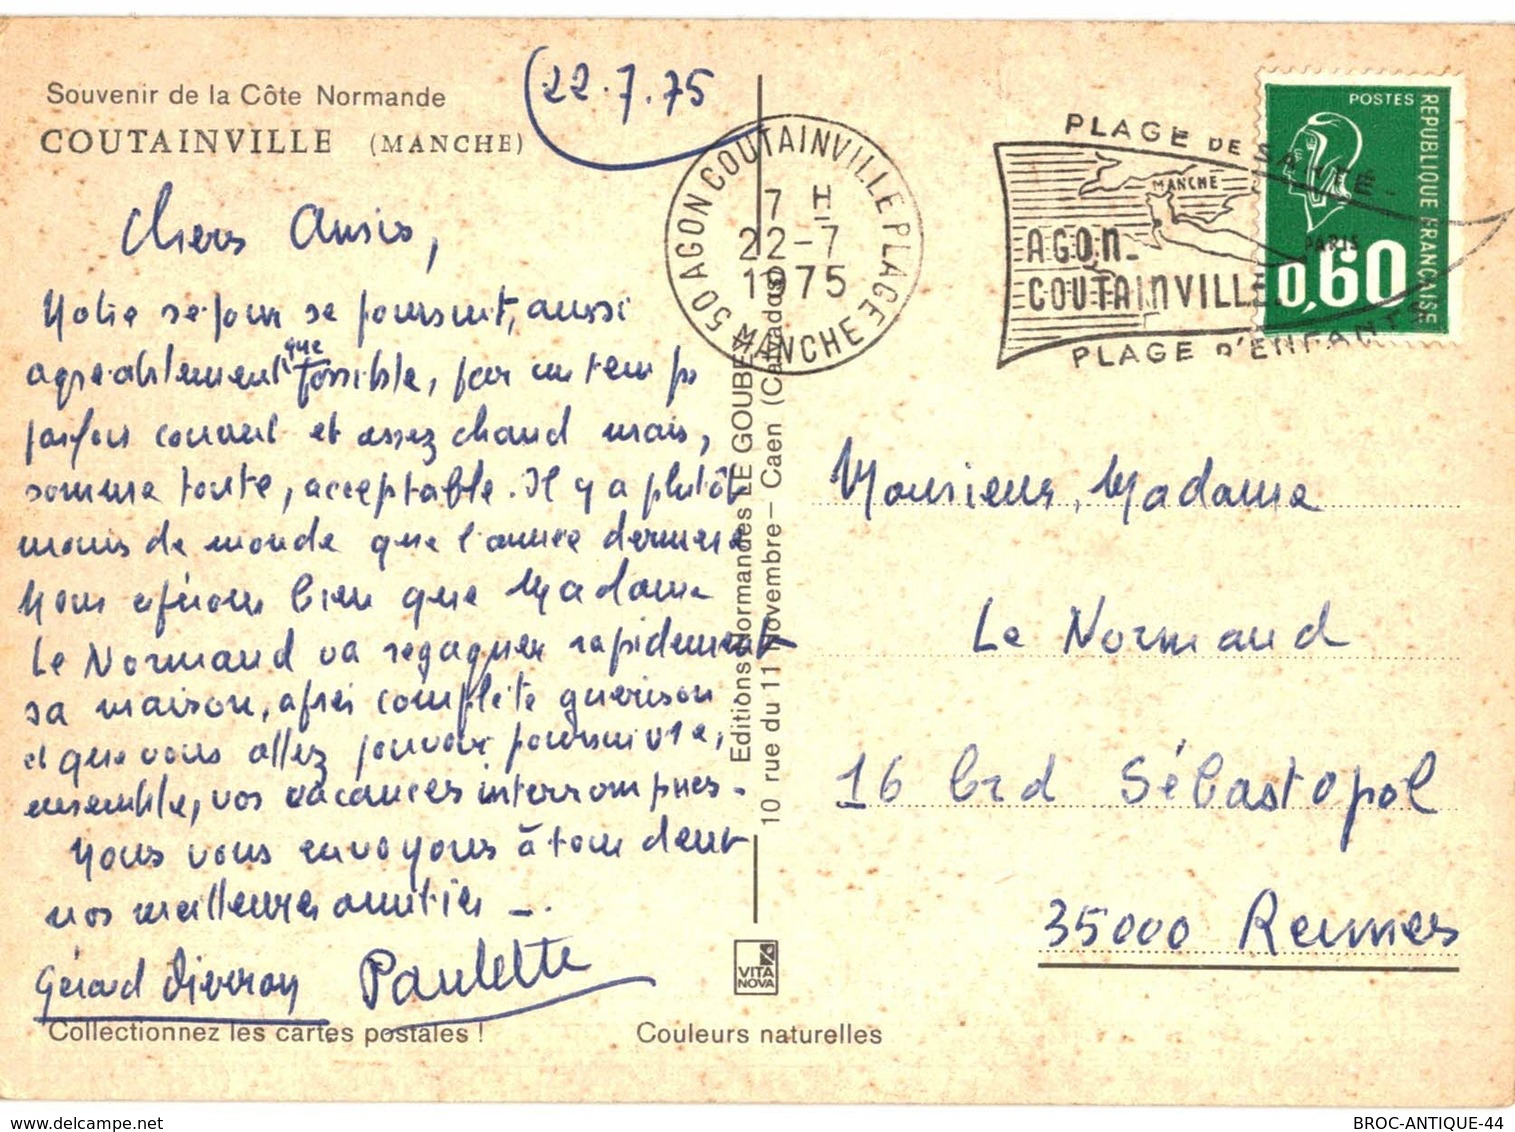 Souvenir de la Côte Normande
COUTAINVILLE (MANCHE)
22.7.75
Chers Amis,
Notre séjour se poursuit, aussi
agréablement que possible, par un temps
parfois couvert et assez chaud mais,
somme toute, acceptable. Il y a plutôt
moins de monde que l'année dernière
Nous espérons bien que Madame
Le Normand va regagner rapidement
sa maison, après complète guérison
et que vous allez pouvoir poursuivre,
ensemble, vos vacances interrompues.
Nous vous envoyons à tous deux
nos meilleures amitiés
Gérard Paulette
Collectionnez les cartes postales !
50 AGON COUTAINVILLE PLAGE
7 H
22-7
1975
MANCHE
Editions Normandes LE GOUBEY
10 rue du 11 Novembre - Caen (Calvados)
VITA
NOVA
Couleurs naturelles
PLAGE DE SANTÉ
MANCHE
PARIS
AGON-
COUTAINVILLE
PLAGE D'ENFANTS
POSTES
REPUBLIQUE FRANÇAISE
0,60
Monsieur, Madame
Le Normand
16 brd Sébastopol
35000 Rennes
delcampe.net
BROC-ANTIQUE-44